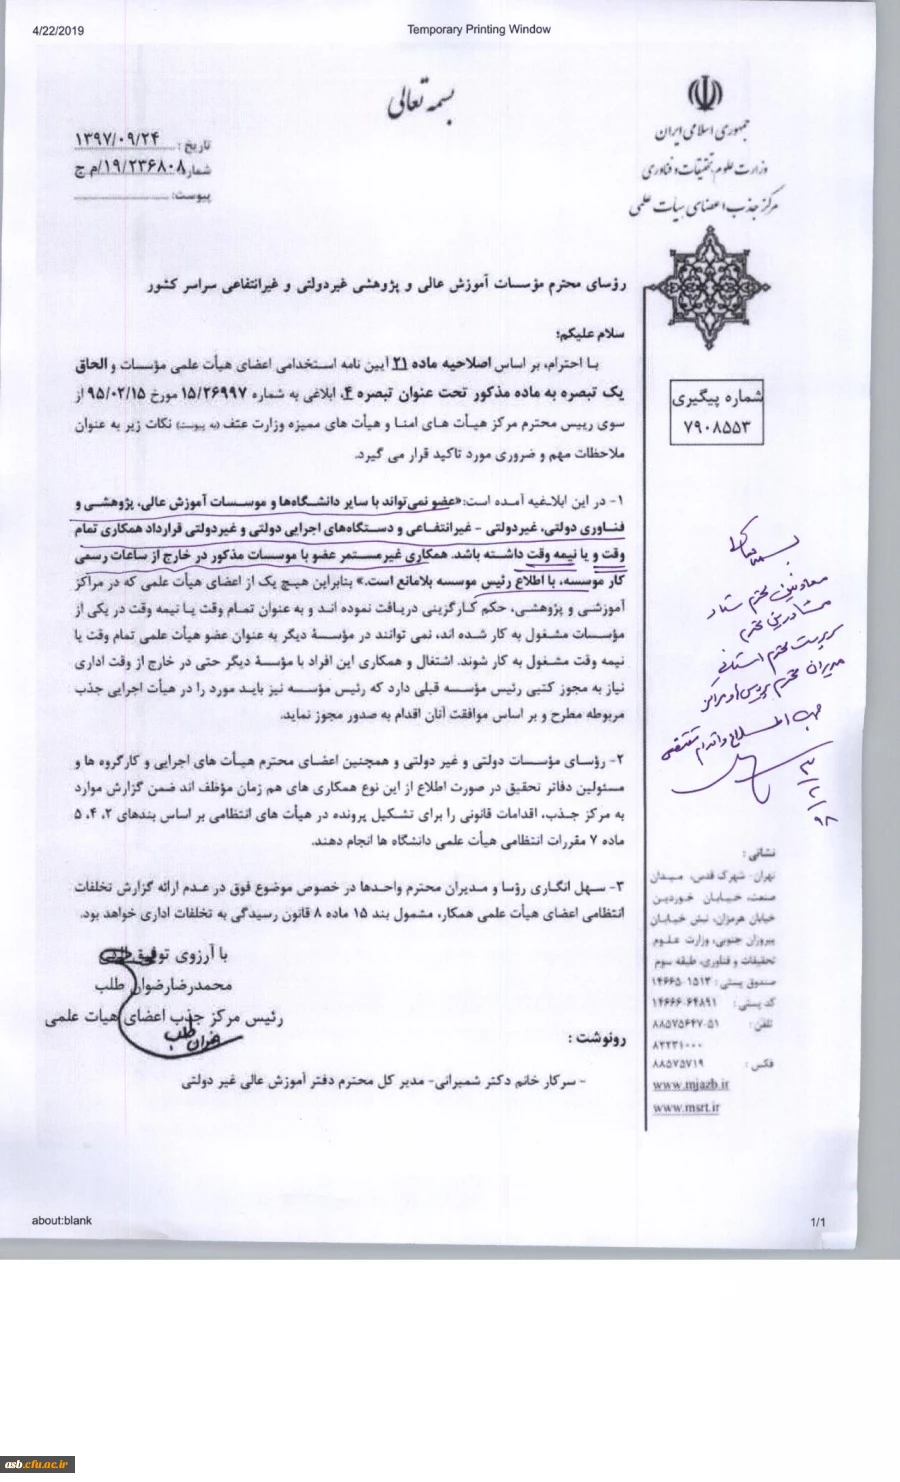 4/22/2019
Temporary Printing Window
بسمه تعالی
جمهوری اسلامی ایران
وزارت علوم، تحقیقات و فناوری
مرکز جذب اعضای هیات علمی
تاریخ : ۱۳۹۷/۰۹/۲۴
شماره ۱۹/۲۳۶۸۰۸/م ج
پیوست:
رؤسای محترم مؤسسات آموزش عالی و پژوهشی غیردولتی و غیرانتفاعی سراسر کشور
سلام علیکم؛
با احترام، بر اساس اصلاحیه ماده ۲۱ آیین نامه استخدامی اعضای هیأت علمی مؤسسات و الحاق
یک تبصره به ماده مذکور تحت عنوان تبصره ۴، ابلاغی به شماره ۱۵/۲۶۹۹۷ مورخ ۹۵/۰۲/۱۵ از
سوی رییس محترم مرکز هیأت های امنا و هیأت های ممیزه وزارت عتف (به پیوست) نکات زیر به عنوان
ملاحظات مهم و ضروری مورد تاکید قرار می گیرد.
شماره پیگیری
۷۹۰۸۵۵۳
۱- در این ابلاغیه آمده است:«عضو نمی‌تواند با سایر دانشگاه‌ها و موسسات آموزش عالی، پژوهشی و
فناوری دولتی، غیردولتی - غیرانتفاعی و دستگاه‌های اجرایی دولتی و غیردولتی قرارداد همکاری تمام
وقت و یا نیمه وقت داشته باشد. همکاری غیرمستمر عضو با موسسات مذکور در خارج از ساعات رسمی
کار موسسه، با اطلاع رئیس موسسه بلامانع است.» بنابراین هیچ یک از اعضای هیأت علمی که در مراکز
آموزشی و پژوهشی، حکم کارگزینی دریافت نموده اند و به عنوان تمام وقت یا نیمه وقت در یکی از
مؤسسات مشغول به کار شده اند، نمی توانند در مؤسسۀ دیگر به عنوان عضو هیأت علمی تمام وقت یا
نیمه وقت مشغول به کار شوند. اشتغال و همکاری این افراد با مؤسسۀ دیگر حتی در خارج از وقت اداری
نیاز به مجوز کتبی رئیس مؤسسه قبلی دارد که رئیس مؤسسه نیز باید مورد را در هیأت اجرایی جذب
مربوطه مطرح و بر اساس موافقت آنان اقدام به صدور مجوز نماید.
۲- رؤسای مؤسسات دولتی و غیر دولتی و همچنین اعضای محترم هیأت های اجرایی و کارگروه ها و
مسئولین دفاتر تحقیق در صورت اطلاع از این نوع همکاری های هم زمان مؤظف اند ضمن گزارش موارد
به مرکز جذب، اقدامات قانونی را برای تشکیل پرونده در هیأت های انتظامی بر اساس بندهای ۲، ۴، ۵
ماده ۷ مقررات انتظامی هیأت علمی دانشگاه ها انجام دهند.
۳- سهل انگاری رؤسا و مدیران محترم واحدها در خصوص موضوع فوق در عدم ارائه گزارش تخلفات
انتظامی اعضای هیأت علمی همکار، مشمول بند ۱۵ ماده ۸ قانون رسیدگی به تخلفات اداری خواهد بود.
با آرزوی توفیق الهی
محمدرضا رضوان طلب
رئیس مرکز جذب اعضای هیات علمی
رونوشت :
- سرکار خانم دکتر شمیرانی- مدیر کل محترم دفتر آموزش عالی غیر دولتی
معاونین محترم ستاد
مشاورین محترم
سرپرست محترم استانی
مدیران محترم پردیس و مراکز
جهت اطلاع و اقدام مقتضی
نشانی :
تهران- شهرک قدس، میدان
صنعت، خیابان خوردین
خیابان هرمزان، نبش خیابان
پیروزان جنوبی، وزارت علوم
تحقیقات و فناوری، طبقه سوم
صندوق پستی : ۱۵۱۳-۱۴۶۶۵
کد پستی : ۶۴۸۹۱-۱۴۶۶۶
تلفن : ۸۸۵۷۵۶۴۷-۵۱
۸۲۲۳۱۰۰۰
فکس : ۸۸۵۷۵۷۱۹
www.mjazb.ir
www.msrt.ir
about:blank
1/1
asb.cfu.ac.ir